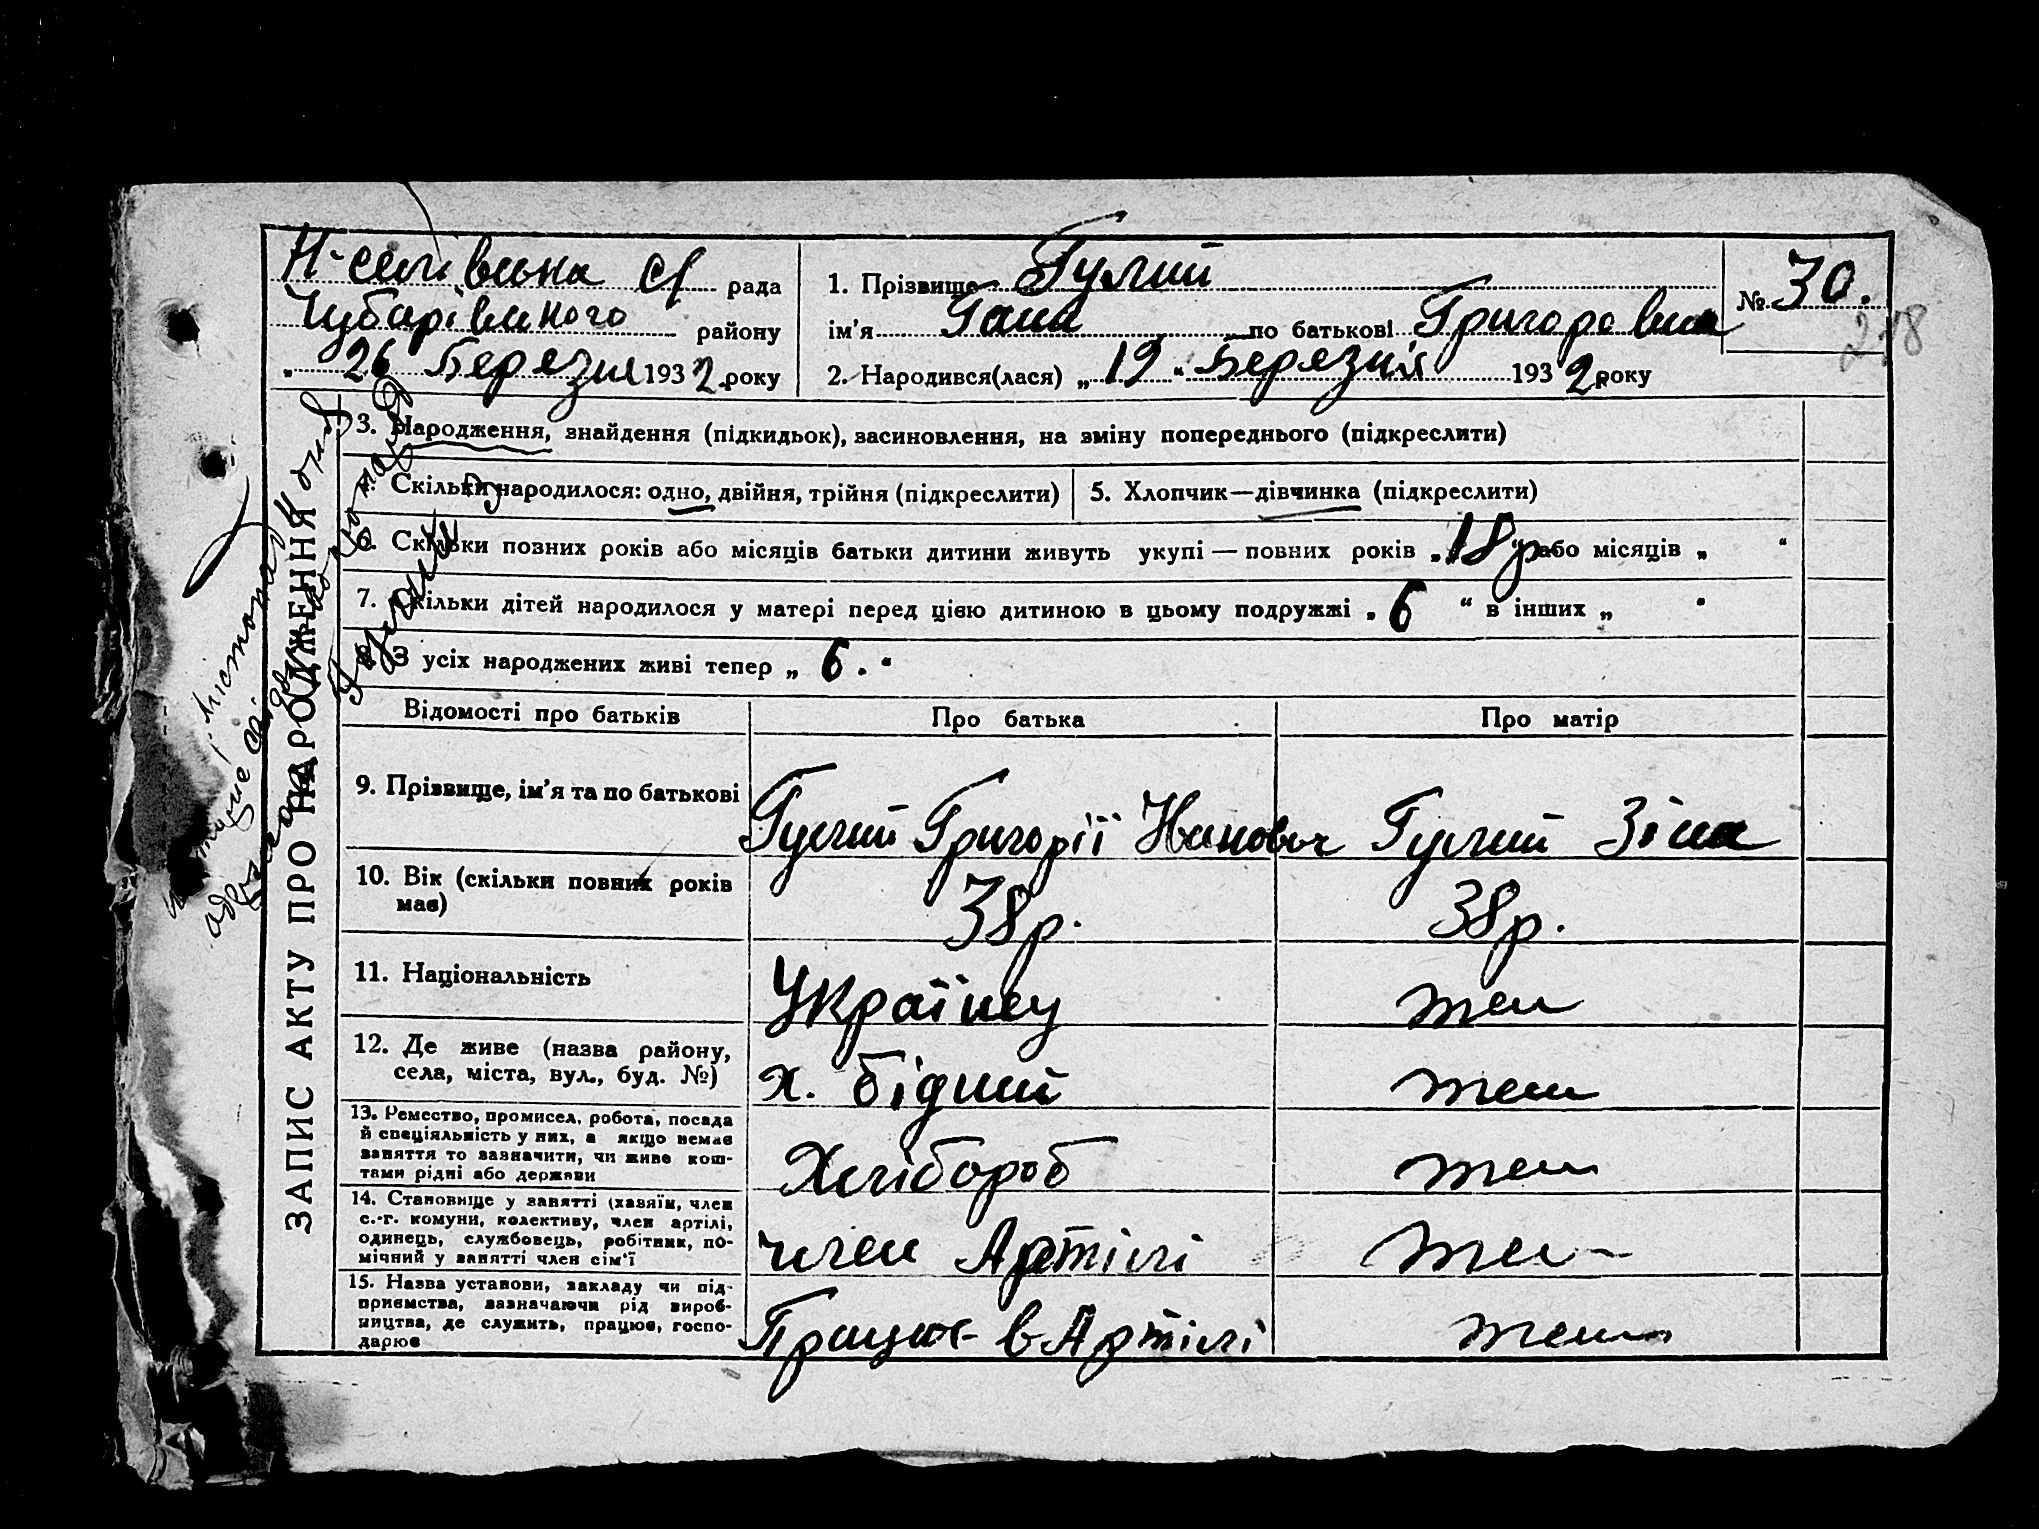 Н-селівська с/ рада
Чубарівського району
„ 26 Березня 1932 року
1. Прізвище Гулий
ім’я Гана по батькові Григоровна
2. Народився(лася) „ 19 “ Березня 1932 року
№ 30.
218
ЗАПИС АКТУ ПРО НАРОДЖЕННЯ
3. Народження, знайдення (підкидьок), засиновлення, на зміну попереднього (підкреслити)
Скільки народилося: одно, двійня, трійня (підкреслити)
5. Хлопчик—дівчинка (підкреслити)
6. Скільки повних років або місяців батьки дитини живуть укупі — повних років „ 18 р. “ або місяців „ “
7. Скільки дітей народилося у матері перед цією дитиною в цьому подружжі „ 6 “ в інших „ “
З усіх народжених живі тепер „ 6. “
Відомості про батьків Про батька Про матір
9. Прізвище, ім’я та по батькові
Гулий Григорії Іванович Гулий Зіна
10. Вік (скільки повних років
має)
38 р. 38 р.
11. Національність
Українец теж
12. Де живе (назва району,
села, міста, вул., буд. №)
х. бідний теж
13. Ремество, промисел, робота, посада
й спеціяльність у них, а якщо немає
заняття то зазначити, чи живе кош-
тами рідні або держави
Хлібороб теж
14. Становище у занятті (хазяїн, член
с.-г. комуни, колективу, член артілі,
одинець, службовець, робітник, по-
мічний у занятті член сім’ї
член Артілі теж
15. Назва установи, закладу чи під-
приємства, зазначаючи рід вироб-
ництва, де служить, працює, госпо-
дарює
Працює в Артілі теж